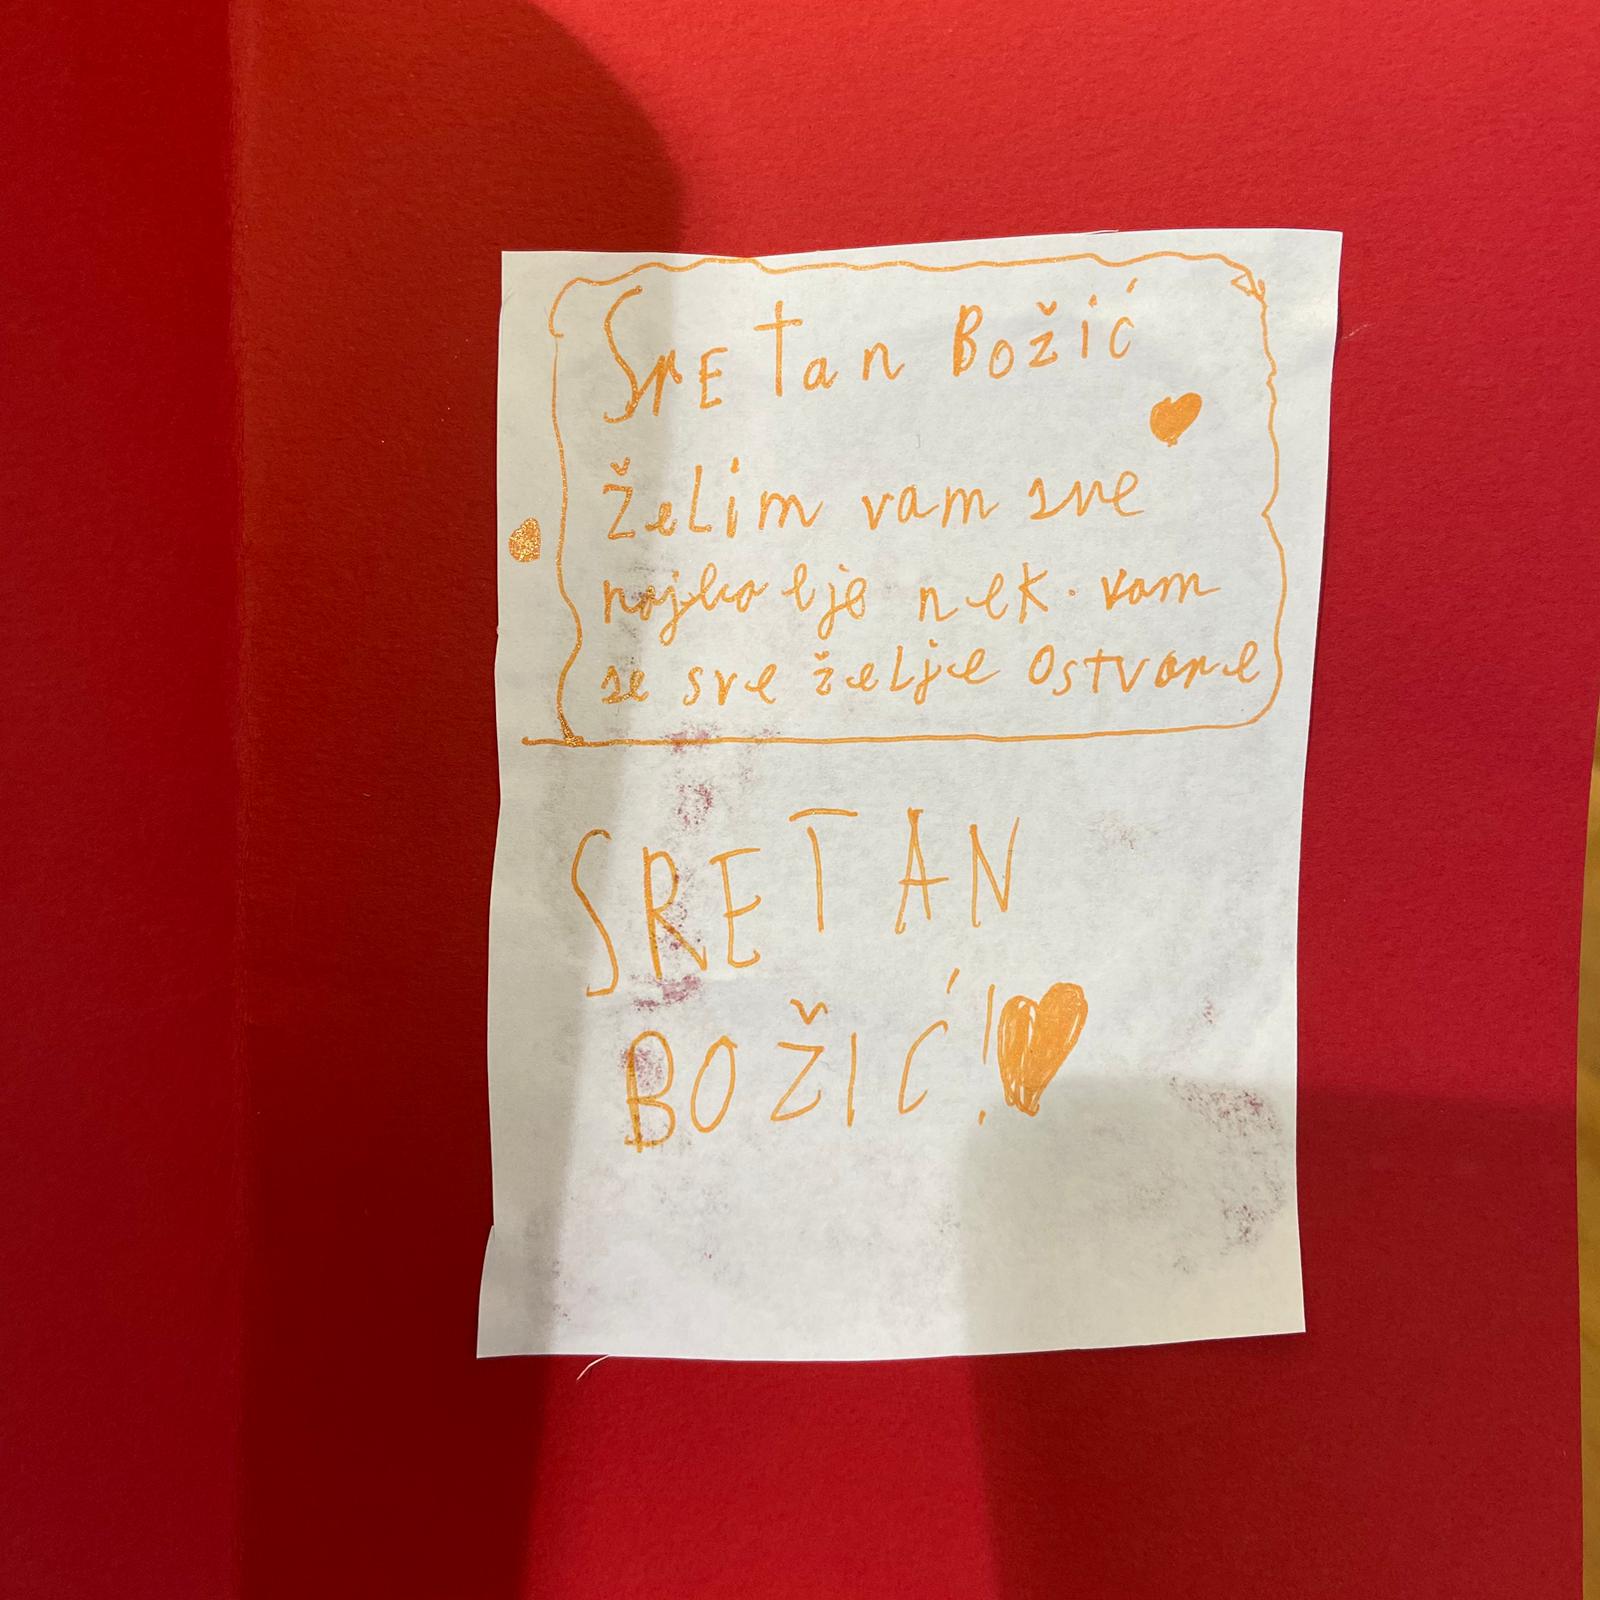 SrETan Božić
želim vam sve
najbolje nek. vam
se sve želje Ostvare
SRETAN
BOŽIĆ!